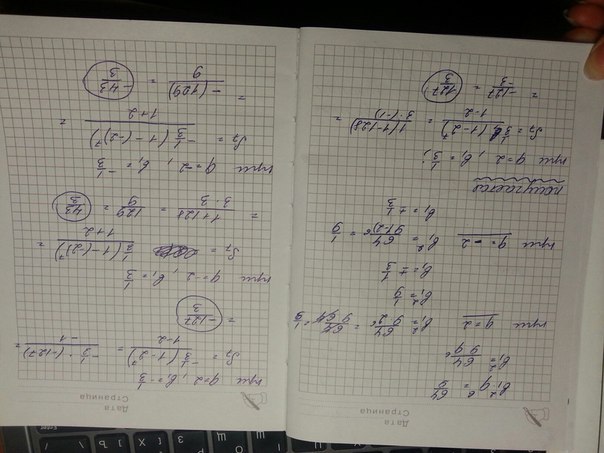 Дата
Страница
b₁² · q⁶ = 64/9
b₁² = 64/9q⁶
при q = 2 b₁² = 64/9·2⁶ = 64/9·64 = 1/9
b₁² = 1/9
b₁ = ± 1/3
при q = -2 b₁² = 64/9(-2)⁶ = 1/9
b₁ = ± 1/3
получается
при q = 2, b₁ = 1/3;
S₇ = 1/3(1-2⁷)/1-2 = 1(1-128)/3·(-1) =
= -127/-3 = 127/3
Дата
Страница
при q = 2, b₁ = -1/3
S₇ = -1/3(1-2⁷)/1-2 = -1/3·(-127)/-1 =
= -127/3
при q = -2, b₁ = 1/3
S₇ = 1/3(1-(-2)⁷)/1+2 =
= 1+128/3·3 = 129/9 = 43/3
при q = -2, b₁ = -1/3
S₇ = -1/3(1-(-2)⁷)/1+2 =
= -(129)/9 = -43/3